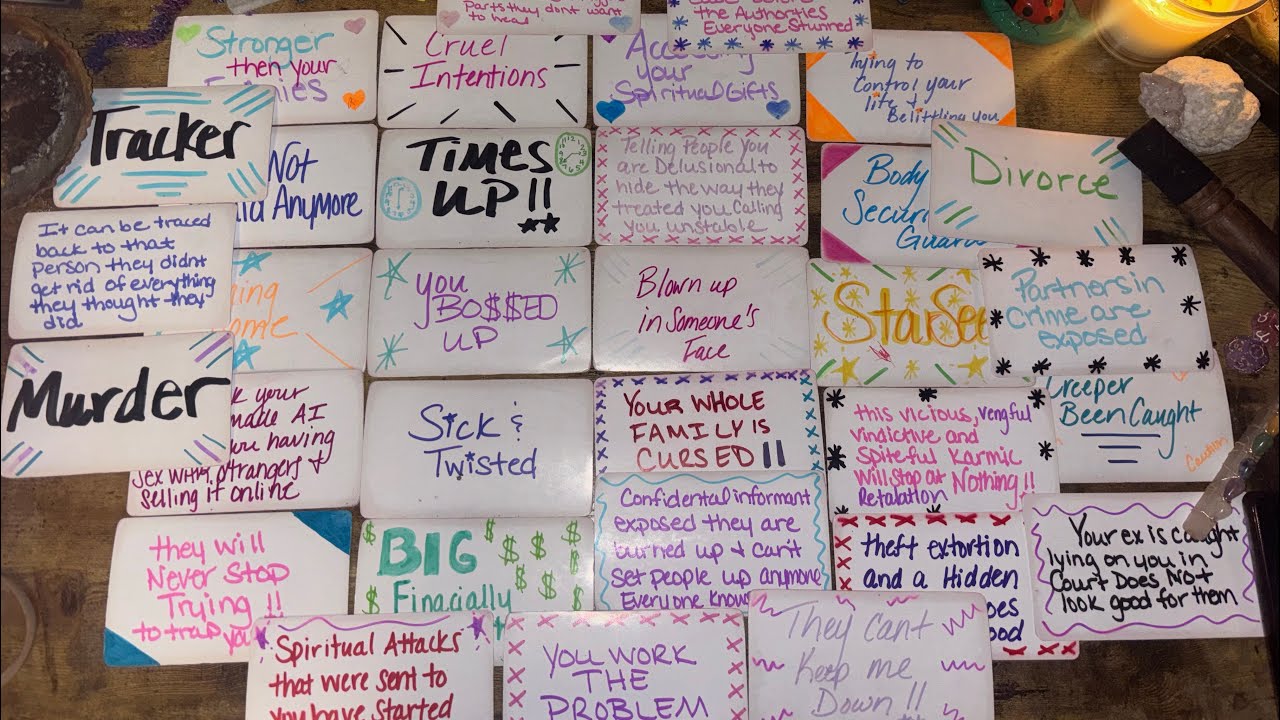 Parts they dont want
to head
the Authorities
Everyone Stunned
Stronger
then your
Cruel
Intentions
your
Spiritual Gifts
Trying to
Control your
life &
Belittling you
Tracker
Not
Anymore
TIMES
UP!!
Telling People you
are Delusional to
hide the way they
treated you Calling
you unstable
Body
Divorce
It can be traced
back to that
person they didnt
get rid of everything
they thought they
did
you
BO$$ED
UP
Blown up
in Someone's
Face
Partners in
Crime are
exposed
Murder
your
made AI
having
Sex with strangers &
Selling it online
Sick &
Twisted
YOUR WHOLE
FAMILY IS
CURSED !!
this vicious, vengful
vindictive and
Spiteful Karmic
Will Stop at Nothing!!
Retalation
Creeper
Been Caught
Caution
they will
Never Stop
Trying !!
to trap you
BIG
Finacially
Confidental informant
exposed they are
burned up & can't
set people up anymore
Everyone Knows
theft extortion
and a Hidden
Your ex is caught
lying on you in
Court Does Not
look good for them
Spiritual Attacks
that were sent to
you have Started
YOU WORK
THE
PROBLEM
They Cant
Keep me
Down !!